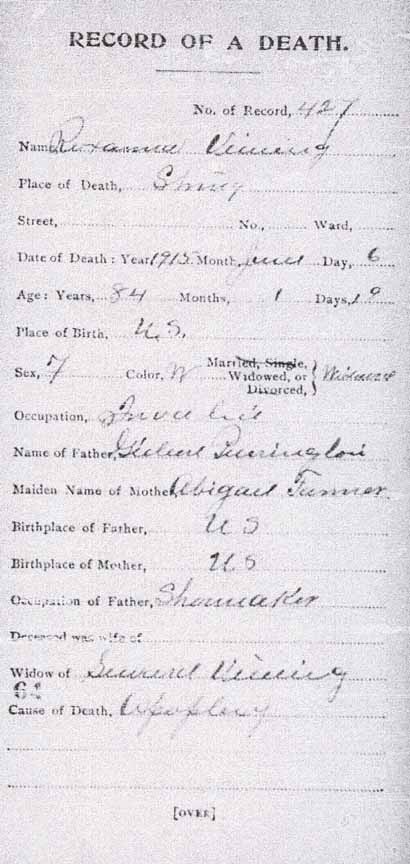 RECORD OF A DEATH.
No. of Record, 427
Name, Roxanna Vining
Place of Death,
Street, No., Ward,
Date of Death: Year 1915 Month, June Day, 6
Age: Years, 84 Months, 1 Days, 19
Place of Birth, U.S.
Sex, F Color, W Married, Single, Widowed, or Divorced, } Widowed
Occupation, Invalid
Name of Father, Purrington
Maiden Name of Mother, Abigail Turner
Birthplace of Father, U S
Birthplace of Mother, U S
Occupation of Father, Shoemaker
Deceased was wife of
Widow of Vining
61
Cause of Death, Apoplexy
[OVER]